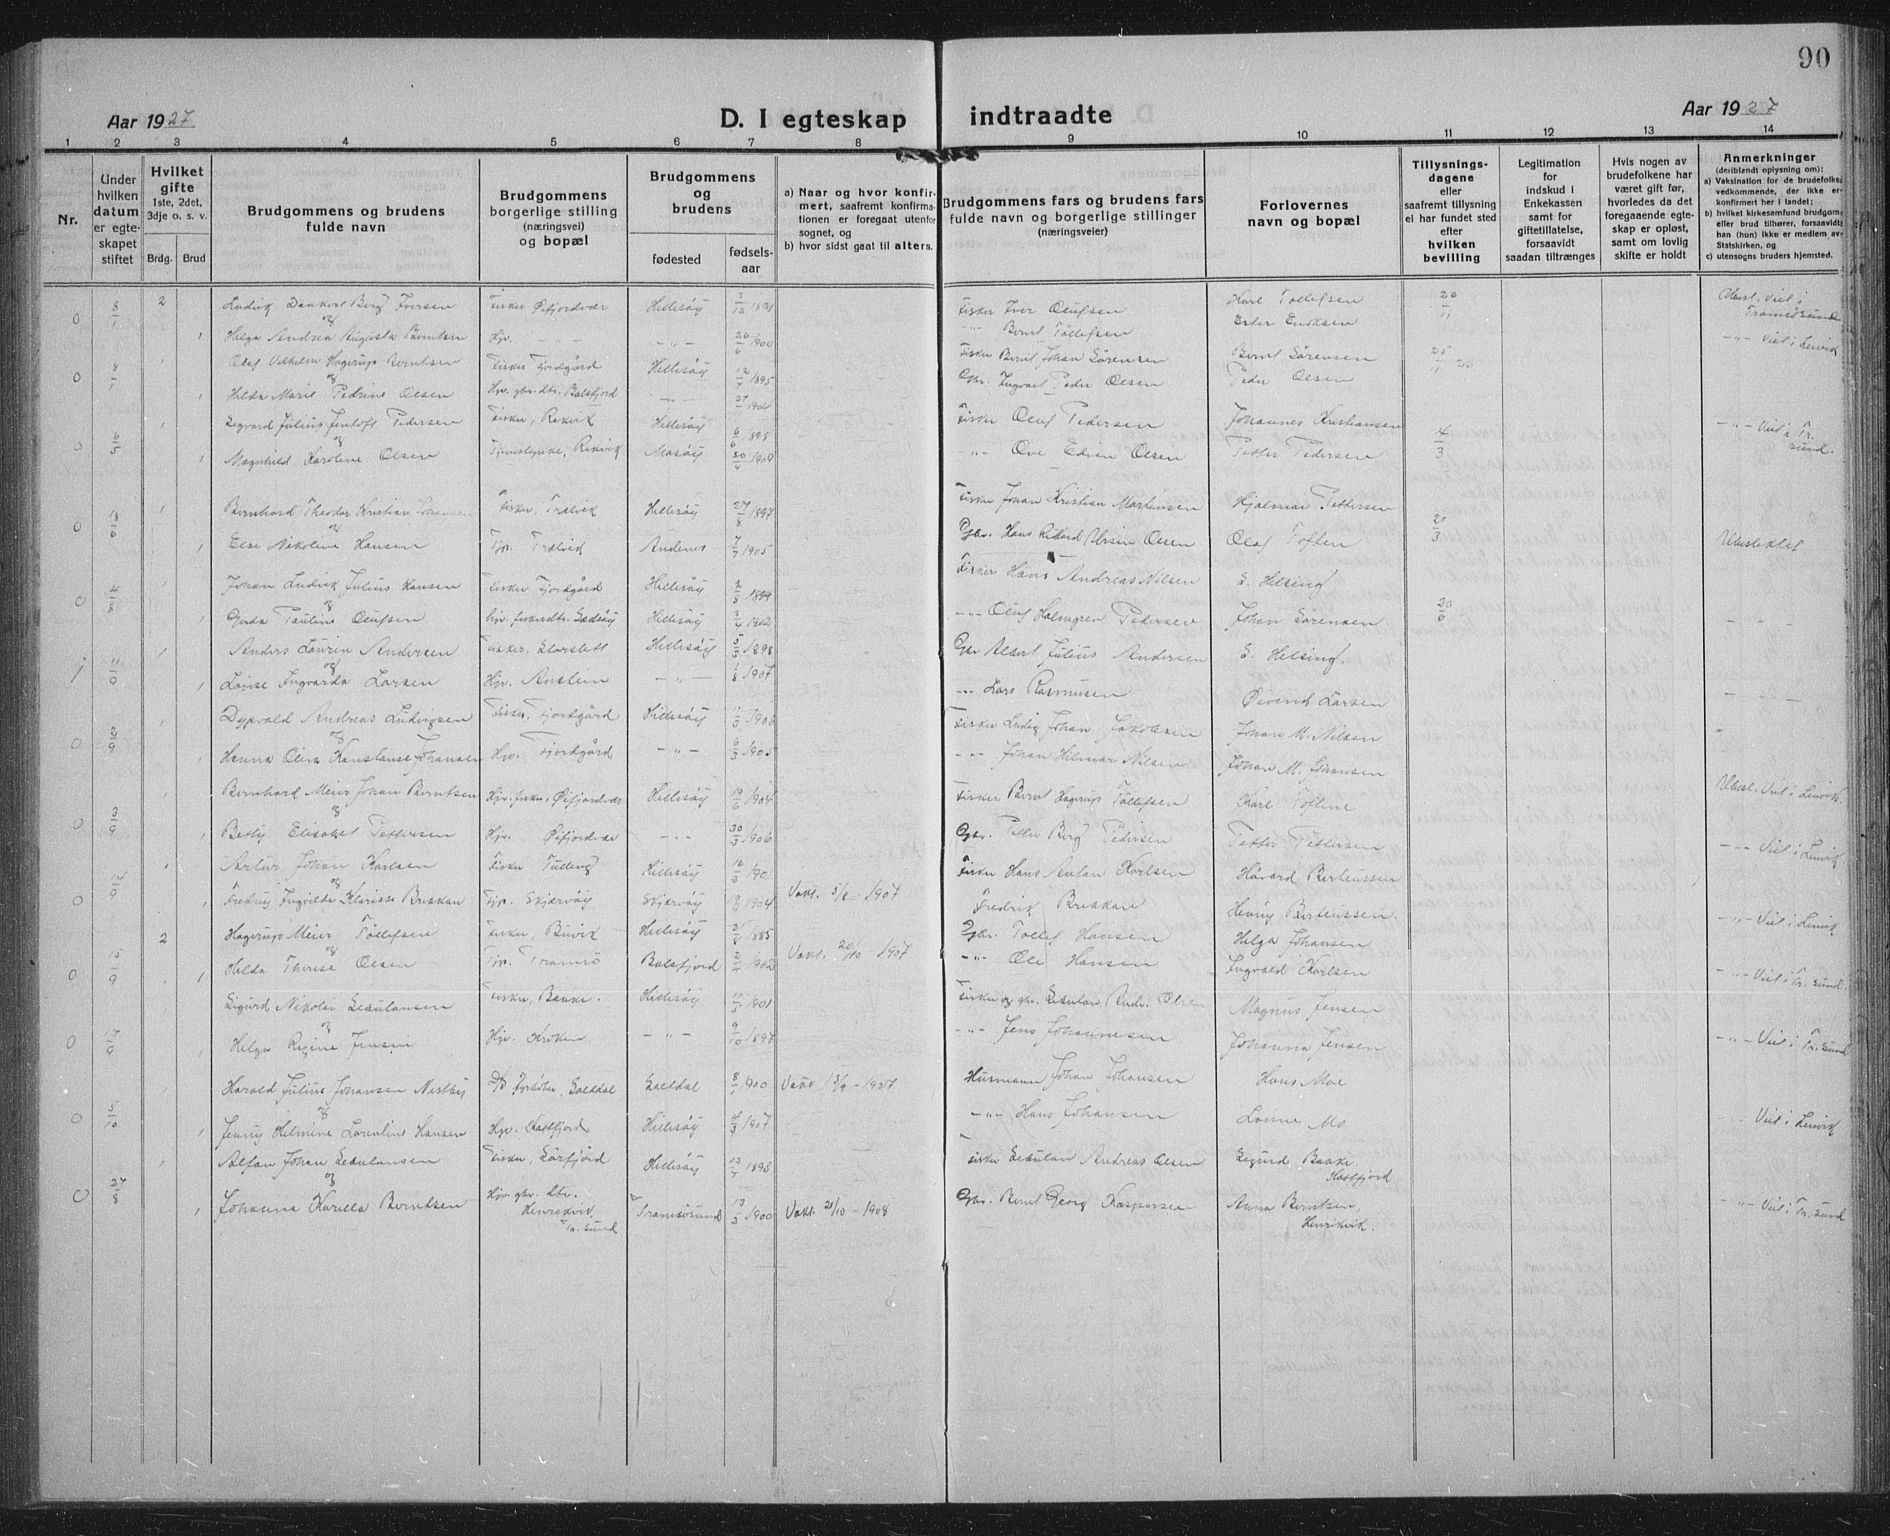 90
Aar 1927
D. I egteskap indtraadte
Aar 1927
1 2 3 4 5 6 7 8 9 10 11 12 13 14
Nr.
Under hvilken datum er egteskapet stiftet
Hvilket gifte 1ste, 2det, 3dje o. s. v.
Brdg. Brud
Brudgommens og brudens fulde navn
Brudgommens borgerlige stilling (næringsvei) og bopæl
Brudgommens og brudens
fødested fødselsaar
a) Naar og hvor konfirmert, saafremt konfirmationen er foregaat utenfor sognet, og
b) hvor sidst gaat til alters.
Brudgommens fars og brudens fars fulde navn og borgerlige stillinger (næringsveier)
Forlovernes navn og bopæl
Tillysningsdagene eller saafremt tillysning ei har fundet sted efter hvilken bevilling
Legitimation for indskud i Enkekassen samt for giftetillatelse, forsaavidt saadan tiltrænges
Hvis nogen av brudefolkene har været gift før, hvorledes da det foregaaende egteskap er opløst, samt om lovlig skifte er holdt
Anmerkninger (deriblendt oplysning om):
a) Vaksination for de brudefolks vedkommende, der ikke er konfirmert her i landet;
b) hvilket kirkesamfund brudgom eller brud tilhører, forsaavidt han (hun) ikke er medlem av Statskirken, og
c) utensogns bruders hjemsted.
0 8/1 2 Ludvig Dankert Berg Iversen Fisker Øifjordvær Hillesøy Fisker Iver Olufsen Karl Tollefsen 20/11 Viet i Tromsøsund
og
1 Helga Andrea Augusta Berntsen Hjv. -"- -"- 26/6 1900 -"- Bernt Tollefsen Ester Eriksen
0 8/1 1 Olaf Vilhelm Hagerup Berntsen Fisker Fjordgård Hillesøy 12/7 1895 Fisker Bernt Johan Sørensen Bernt Sørensen -"- Viet i Lenvik
og
1 Hilda Marie Pedrine Olsen Hjv. gbr. dtr. Balsfjord -"- 27/11 1904 Gbr. Ingvart Peder Olsen Peder Olsen
0 6/5 1 Segvard Julius Jentoft Pedersen Fisker, Rekvik Hillesøy 6/6 1898 Fisker Oluf Pedersen Johannes Kristiansen 4/3 -"- Viet i Tr. sund.
og
1 Magnhild Karoline Olsen Tjenestepike, Rekvik Måsøy 30/4 1909 -"- Ove Edvin Olsen Petter Pedersen
0 18/6 1 Bernhard Theodor Kristian Johansen Fisker, Trælvik Hillesøy 27/8 1897 Fisker Johan Kristian Martinsen Hjalmar Pettersen 20/3
og
1 Else Nikoline Hansen Tjp. Trælvik Andenes 7/7 1905 Gbr. Hans Rikard Ursin Olsen Olaf Toften Ubeslektet
0 4/8 1 Johan Ludvik Julius Hansen Fisker Fjordgård Hillesøy 2/8 1899 Fisker Hans Andreas Nilsen E. Helsing
og
1 Gyda Pauline Olufsen Hjv. fiskerdtr. Hillesøy 1902 -"- Oluf Holmgren Pedersen Johan Sørensen 20/6 -"-
1 11/9 1 Anders Laurin Andersen Fisker. Storslett Hillesøy 5/5 1898 Gbr Albert Julius Andersen E. Helsing.
og
1 Lovise Ingvarda Larsen Hjv. Austein -"- 1/8 1907 -"- Lars Rasmussen Øivind Larsen
0 2/9 1 Dypvald Andreas Ludvigsen Fisker, Fjordgård Hillesøy 11/5 1906 Fisker Ludvig Johan Jakobsen Johan M. Nilsen
og
1 Hanna Oliva Konstanse Johansen Hjv. Fjordgård -"- 6/3 1905 -"- Johan Hilmar Nilsen Johan M. Johansen
0 3/9 1 Bernhard Meier Johan Berntsen Hjv. fisker, Øifjordvær Hillesøy 19/6 1904 Fisker Bernt Hagerup Tollefsen Karl Tofline Ubesl. Viet i Lenvik.
og
1 Betsy Elisabet Pettersen Hjv. Øifjordvær -"- 30/3 1906 Gbr. Petter Berg Pedersen Petter Pettersen
0 14/9 1 Artur Johan Karlsen Fisker Tulleng Hillesøy 16/3 190 Fisker Hans Anton Karlsen Håvard Berteussen -"- Viet i Lenvik
og
1 Fredrug Ingvilde Klarisse Brekkan Tjp. Skjærvøy Skjærvøy 1904 Vakt. 5/8 - 1907 Fredrik Brekkan Henry Berteussen.
0 15/9 2 Hagerup Meier Tollefsen Fisker, Buvik Hillesøy 1885 Gbr. Tollef Hansen Helga Johansen -"- Viet i Lenvik
og
1 Helda Therese Olsen Tjp. Tromsø Balsfjord 2/4 1902 Vakt. 20/10 - 1907 -"- Ole Hansen Ingvald Karlsen
0 17/9 Sigurd Nikolai Sedulausen Fisker, Bakke. Hillesøy 1901 Fisker og gbr. Sedulau Andr. Olsen Magnus Jensen -"- Viet i Tr. sund.
og
1 Helga Regine Jensen Hjv. Kroken -"- 9/10 1897 -"- Jens Johannesen Johanna Jensen -"- Viet i Tr. sund
0 5/10 Harald Julius Johansen Nestby Saltdal Saltdal 8/7 1900 13/9 - 1907 Husmann Johan Johansen Hans Moe
og
1 Jenny Helmine Lorentine Hansen Hjv. Kattfjord Hillesøy 4/3 1907 -"- Hans Johansen Mo -"- Viet i Lenvik
0 27/8 1 Alfon Johan Sedulausen Fisker, Sørfjord Hillesøy 13/7 1895 Fisker Sedulau Andreas Olsen Sigurd Bakke. Kattfjord
og
1 Johanna Karilla Berntsen Hjv. gbr. dtr. Henrikvik, Tr. sund Tromsøsund 13/3 1900 Vakt. 21/10 - 1908 Gbr. Bernt Georg Kaspersen Anna Berntsen, Henrikvik. -"- Viet i Tr. sund